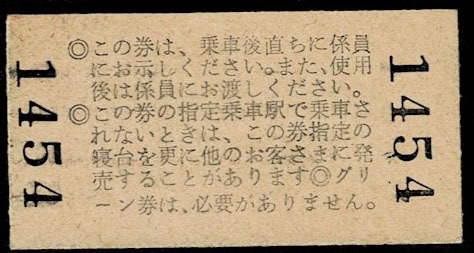 1454
◎この券は、乗車後直ちに係員
にお示しください。また、使用
後は係員にお渡しください。
◎この券の指定乗車駅で乗車さ
れないときは、この券指定の
寝台を更に他のお客さまに発
売することがあります◎グリ
ーン券は、必要がありません。
1454